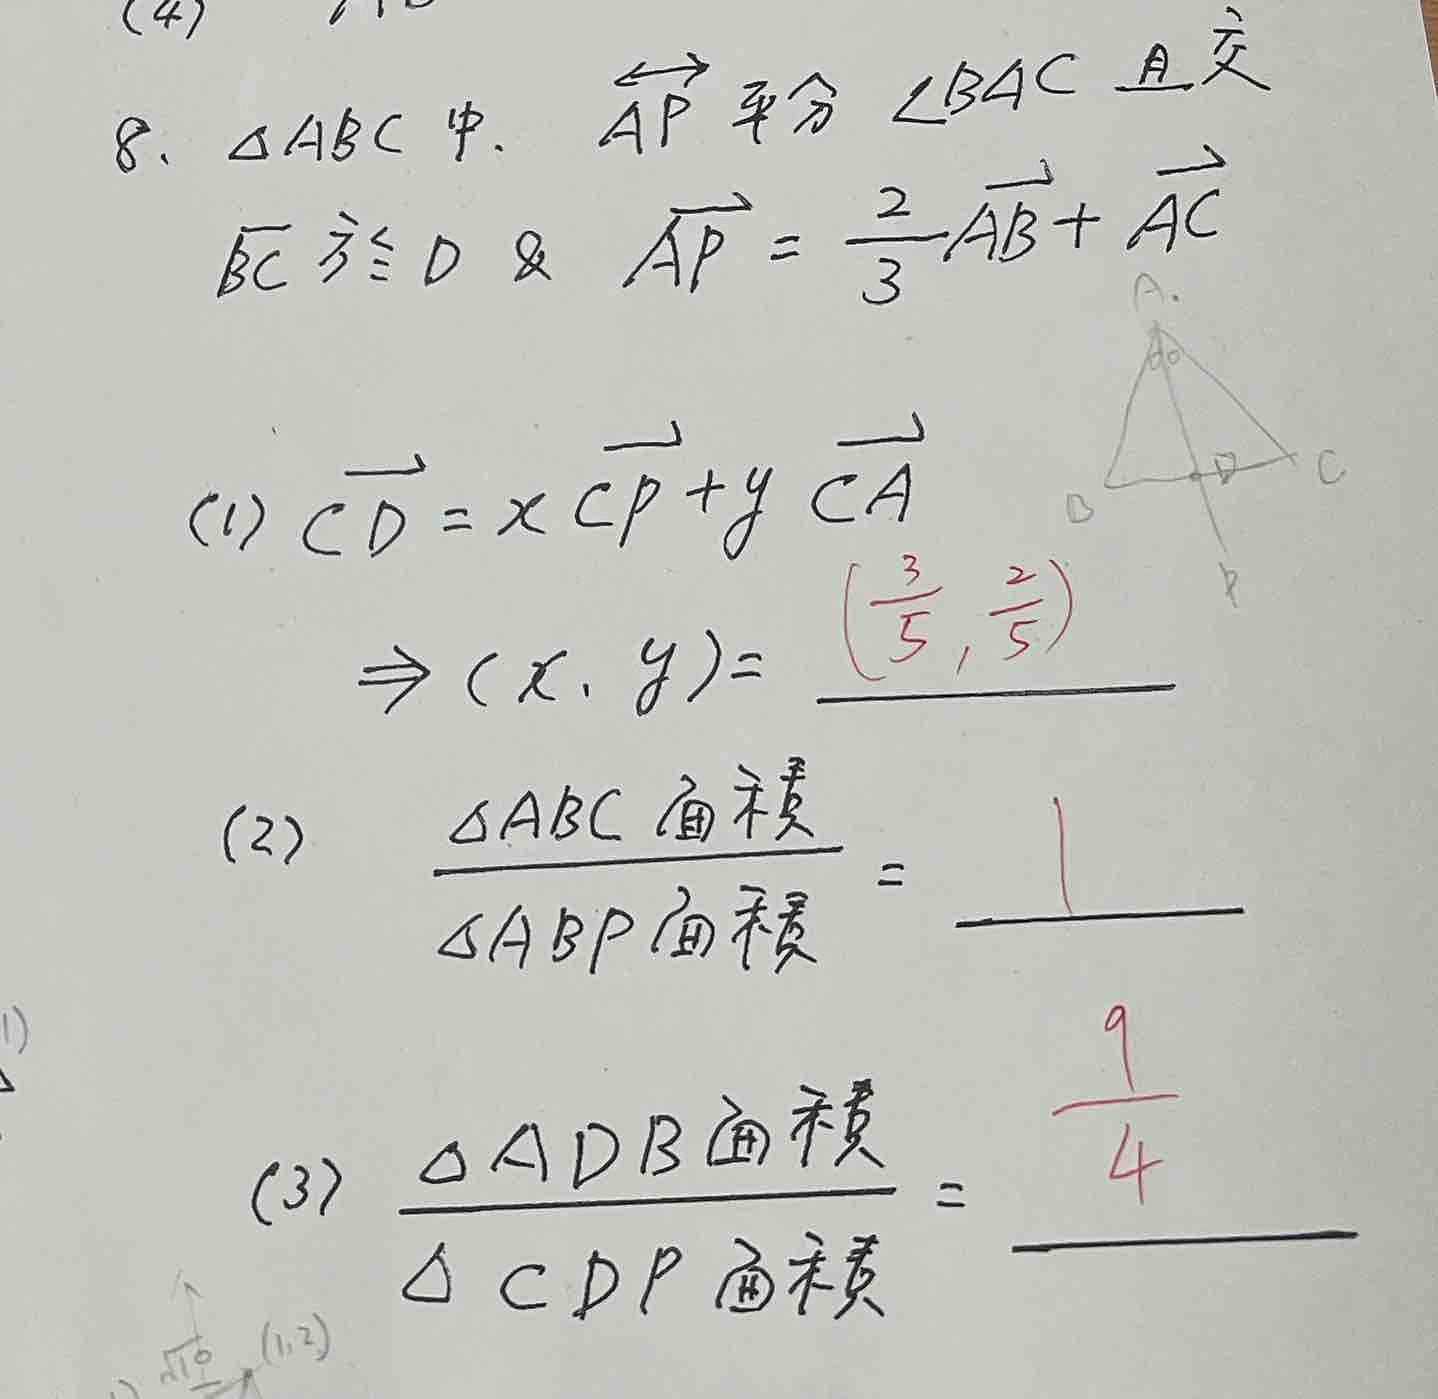 (4)
8. △ABC中. AP 平分 ∠BAC 且交
BC 於 D & AP = 2/3 AB + AC
A.
B D C
P
(1) CD = x CP + y CA
⇒ (x, y) = (3/5, 2/5)
(2) △ABC面積 / △ABP面積 = 1
(3) △ADB面積 / △CDP面積 = 9/4
1)
√10 (1,2)